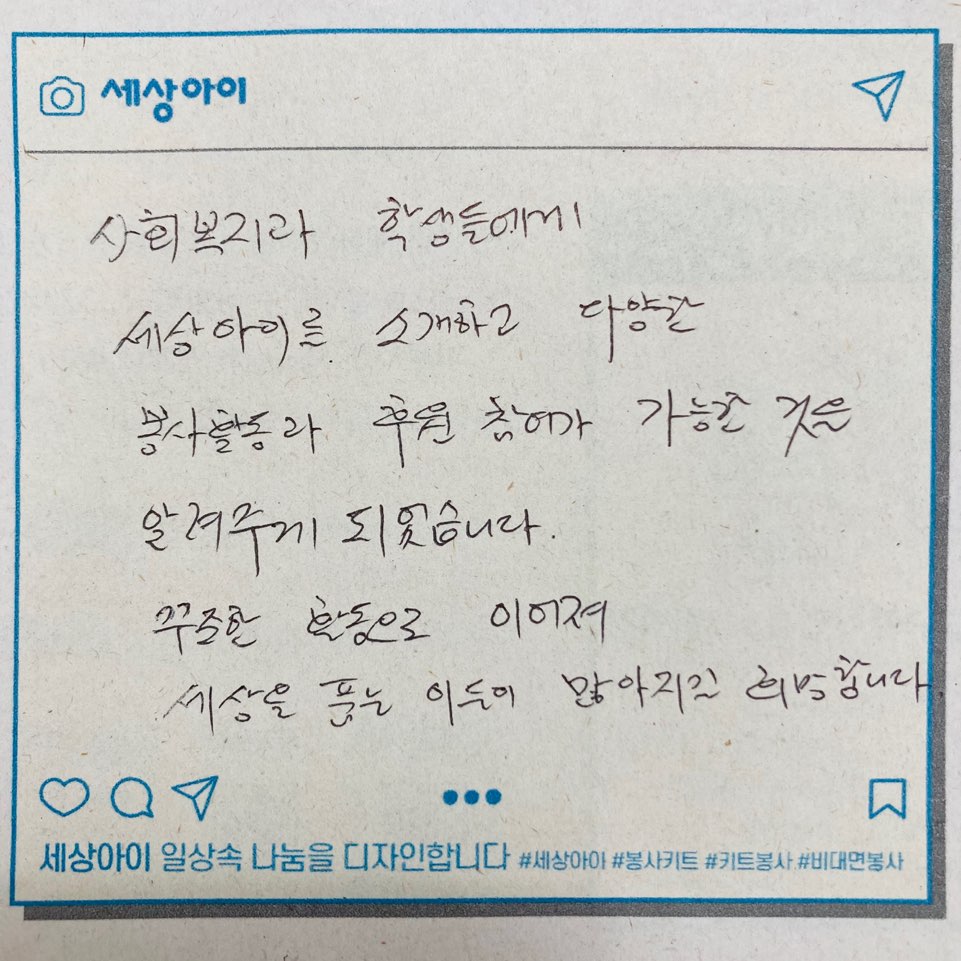 세상아이
사회복지과 학생들에게
세상아이를 소개하고 다양한
봉사활동과 후원 참여가 가능한 것을
알려주게 되었습니다.
꾸준한 활동으로 이어져
세상을 품는 이들이 많아지길 희망합니다
세상아이 일상속 나눔을 디자인합니다 #세상아이 #봉사키트 #키트봉사 #비대면봉사